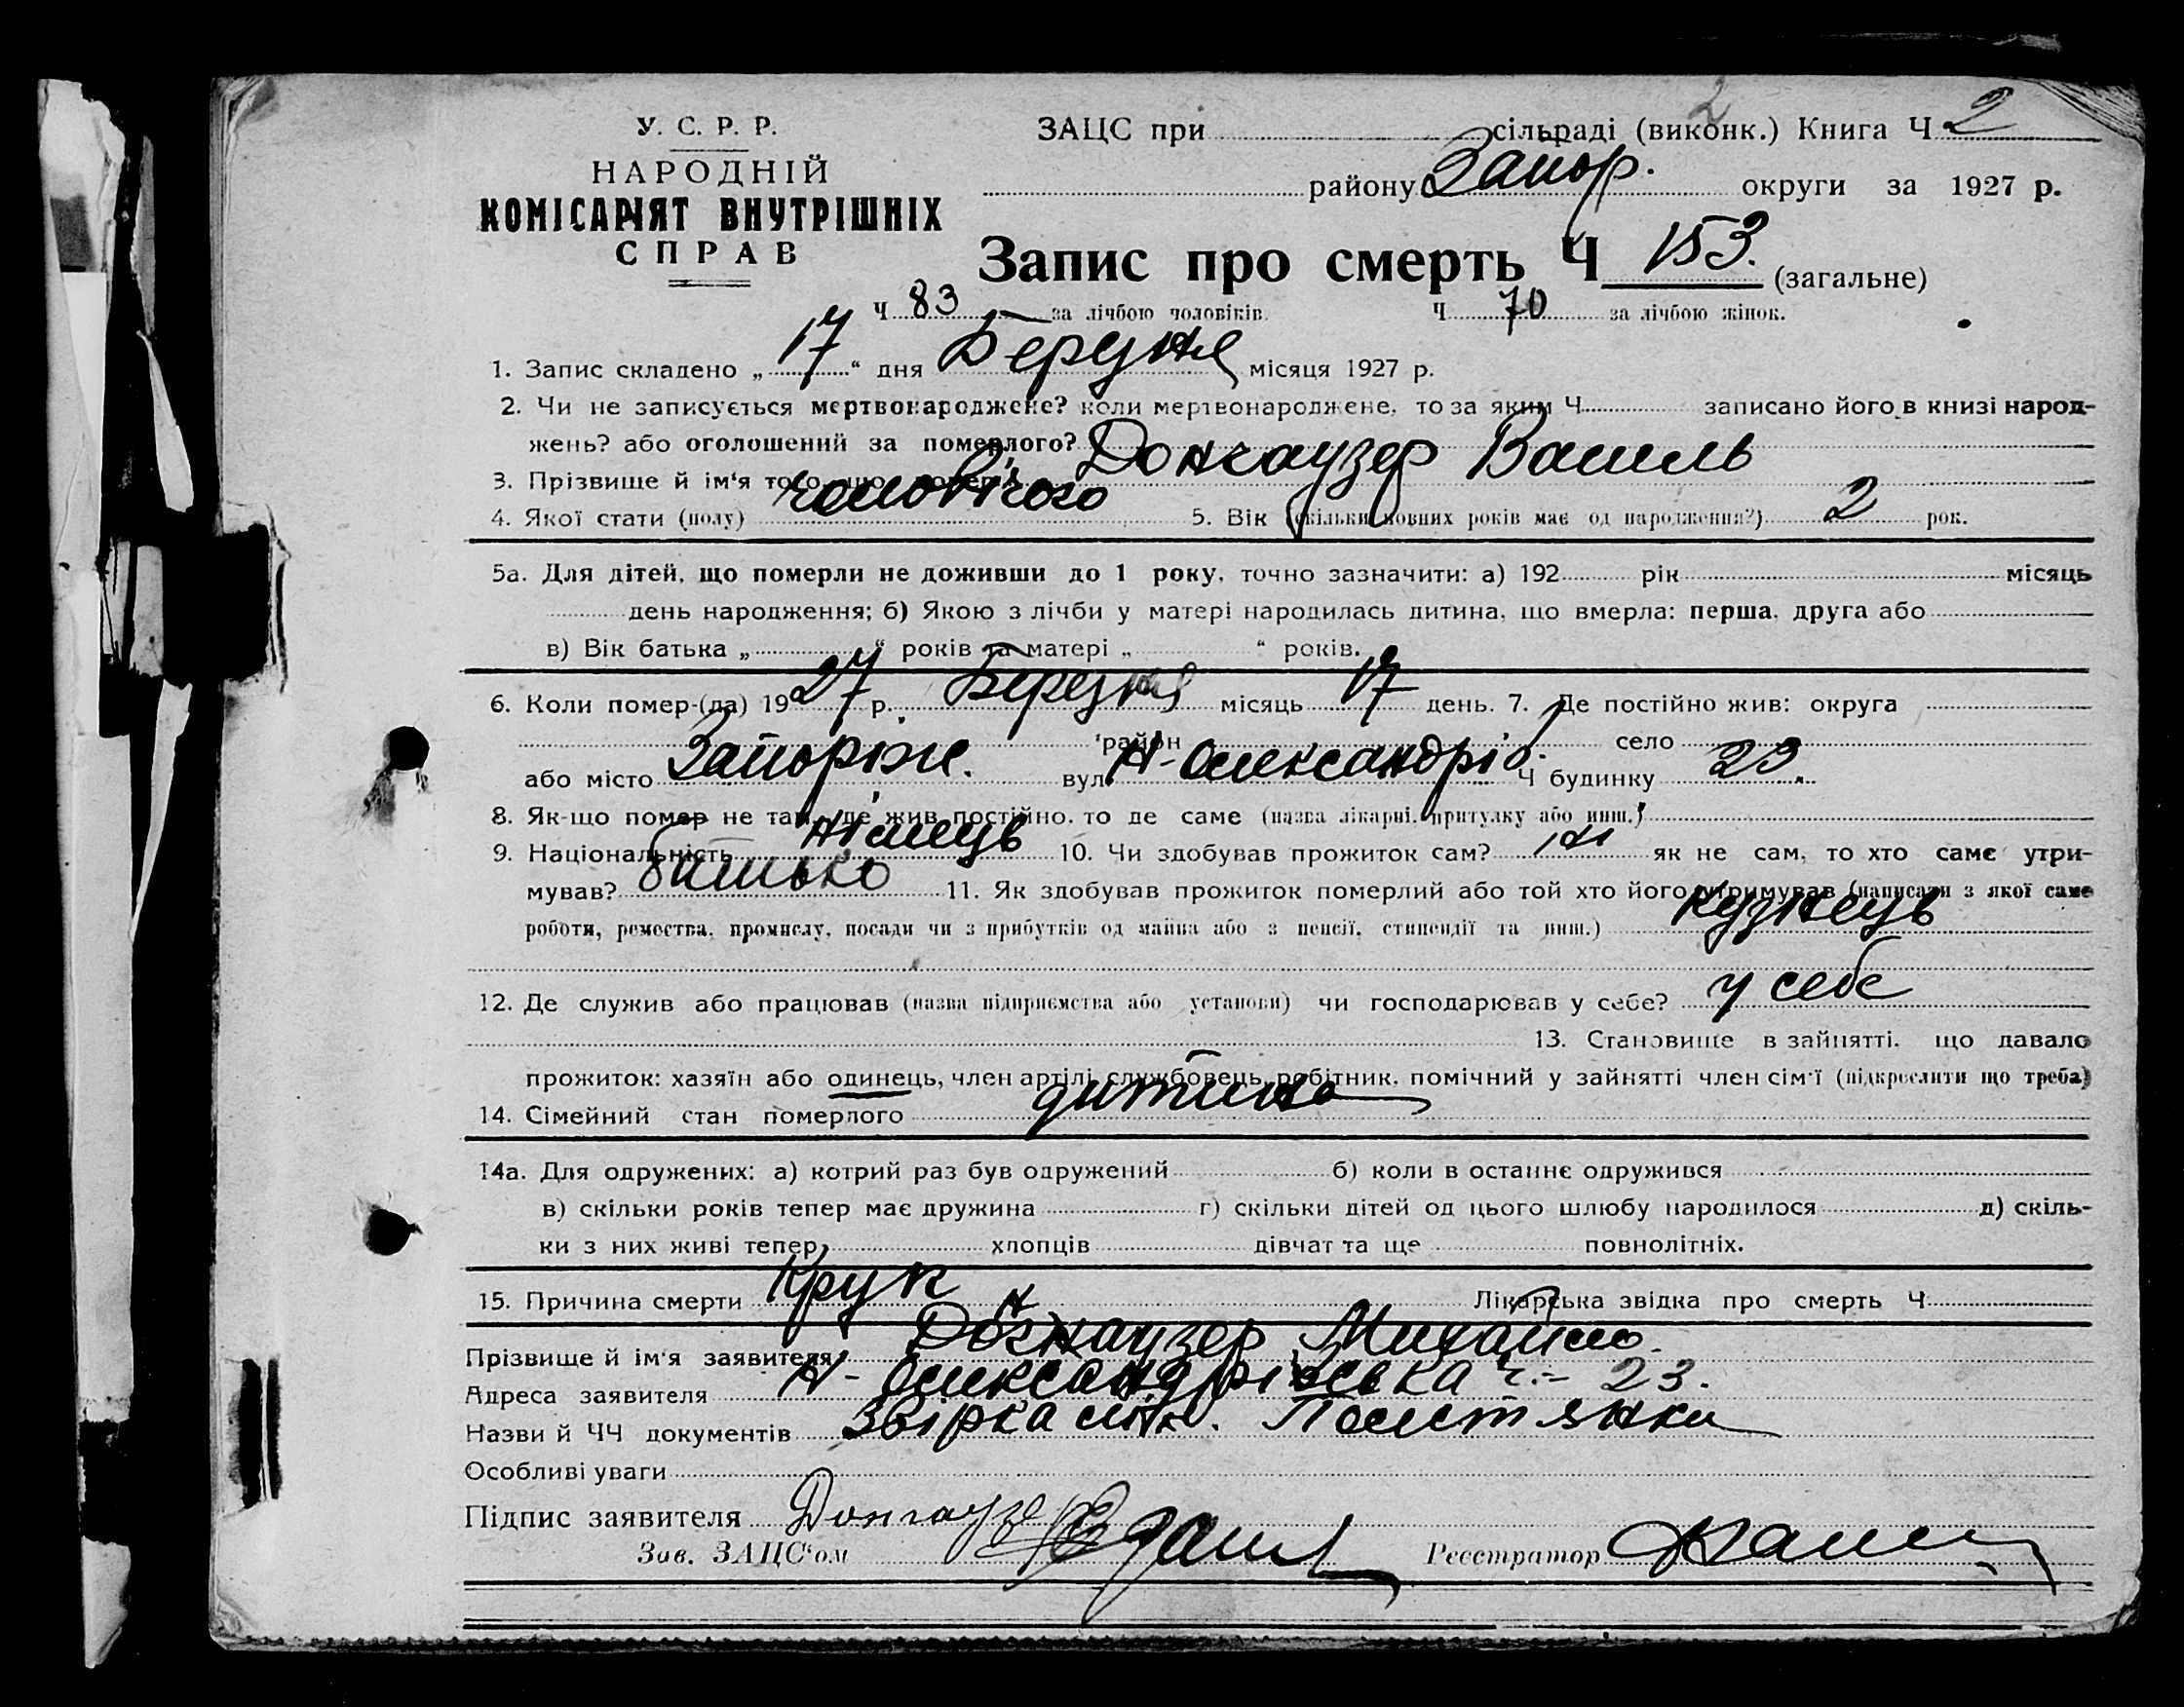 2
У. С. Р. Р.
НАРОДНІЙ
КОМІСАРІЯТ ВНУТРІШНІХ
СПРАВ
ЗАЦС при сільраді (виконк.) Книга Ч 2
району Запор. округи за 1927 р.
Запис про смерть Ч 153. (загальне)
Ч 83 за лічбою чоловіків. Ч 70 за лічбою жінок.
1. Запис складено „ 17 “ дня Березня місяця 1927 р.
2. Чи не записується мертвонароджене? коли мертвонароджене, то за яким Ч записано його в книзі народ-
жень? або оголошений за померлого?
3. Прізвище й ім'я того, що помер Донгаузер Василь
4. Якої стати (полу) чоловічого 5. Вік (скільки повних років має од народження?) 2 рок.
5а. Для дітей, що померли не доживши до 1 року, точно зазначити: а) 192 рік місяць
день народження; б) Якою з лічби у матері народилась дитина, що вмерла: перша, друга або
в) Вік батька „ “ років та матері „ “ років.
6. Коли помер-(ла) 1927 р. Березня місяць 17 день. 7. Де постійно жив: округа
район село
або місто Запоріже. вул. Н-Олександрів. Ч будинку 23.
8. Як-що помер не там, де жив постійно, то де саме (назва лікарні, притулку або инш.)
9. Національність німець 10. Чи здобував прожиток сам? ні як не сам, то хто саме утри-
мував? батько 11. Як здобував прожиток померлий або той хто його утримував (написати з якої саме
роботи, ремества, промислу, посади чи з прибутків од майна або з пенсії, стипендії та инш.) кузнець
12. Де служив або працював (назва підприємства або установи) чи господарював у себе? у себе
13. Становище в зайнятті, що давало
прожиток: хазяїн або одинець, член артілі, службовець, робітник, помічний у зайнятті член сім'ї (підкреслити що треба)
14. Сімейний стан померлого дитина
14а. Для одружених: а) котрий раз був одружений б) коли в останнє одружився
в) скільки років тепер має дружина г) скільки дітей од цього шлюбу народилося д) скіль-
ки з них живі тепер, хлопців дівчат та ще повнолітніх.
15. Причина смерти Круп Лікарська звідка про смерть Ч
Прізвище й ім'я заявителя Донгаузер Михайло.
Адреса заявителя Н-Олександрівська ч.- 23.
Назви й ЧЧ документів Звірка
Особливі уваги
Підпис заявителя Донгаузер
Зав. ЗАЦС“ом Реєстратор